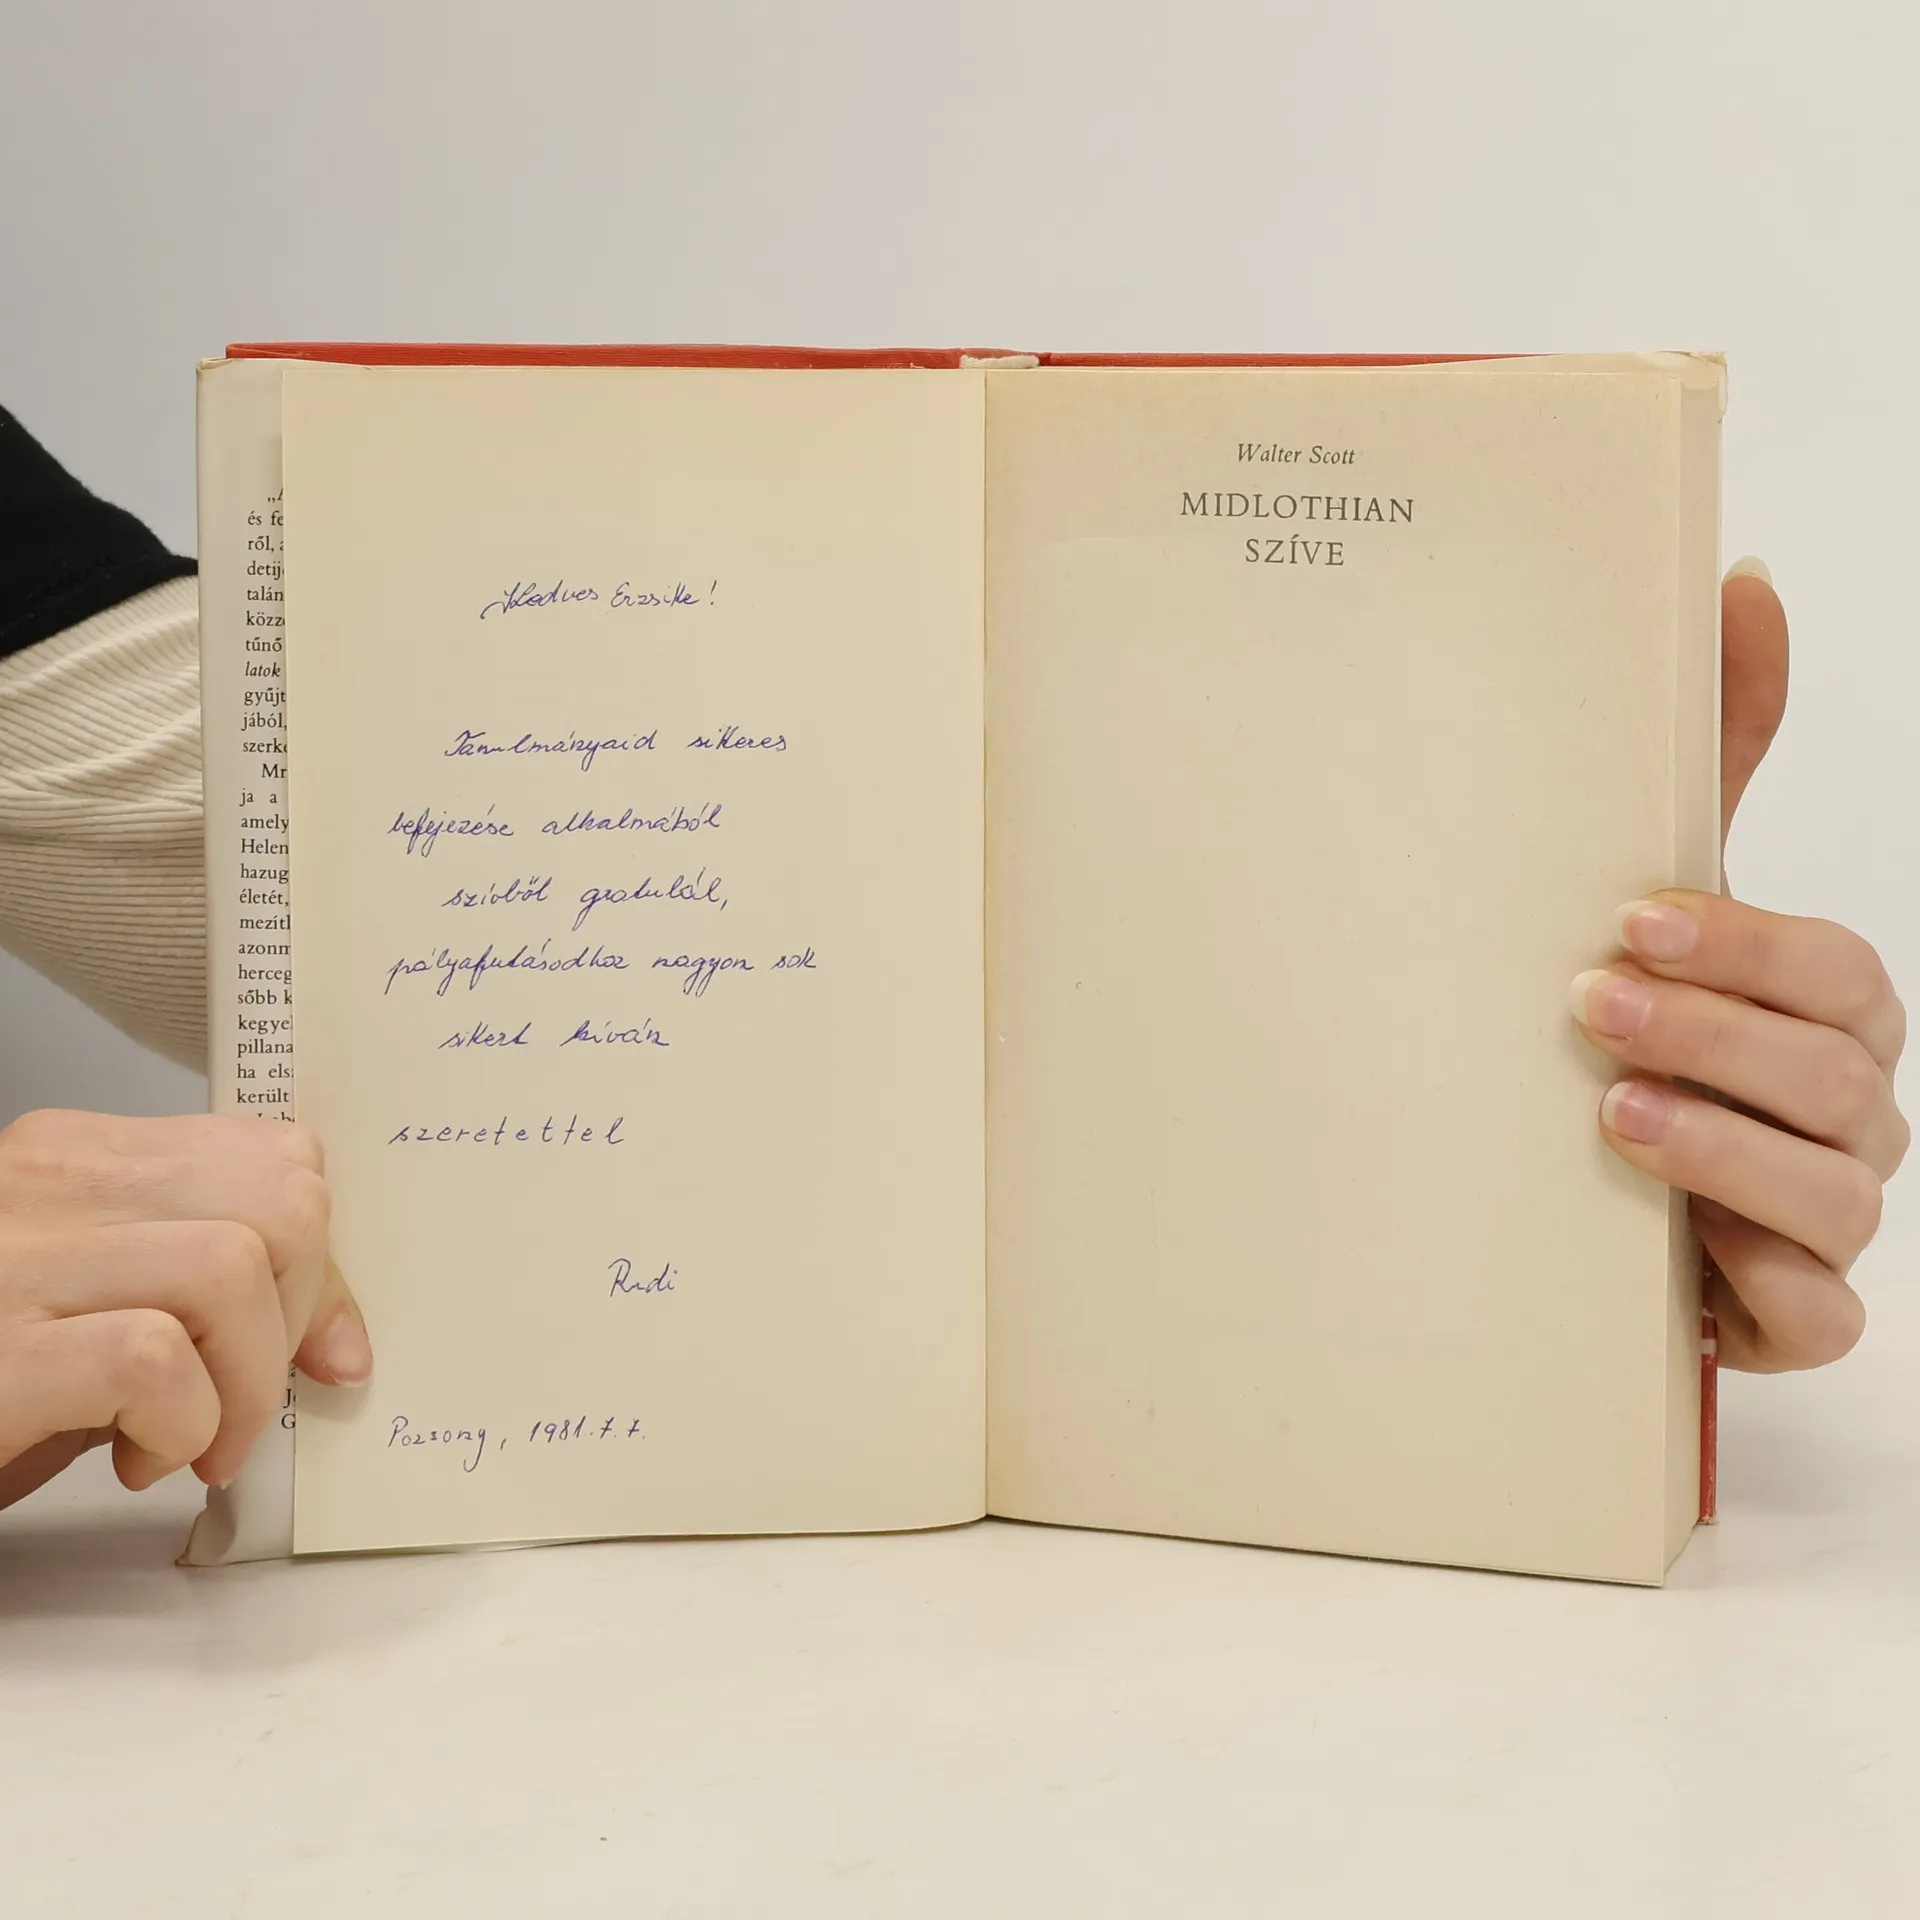 „A
és fe
ről, a
detij
talán
közz
tűnő
latok
gyűjt
jából,
szerk
Mr
ja a
amely
Helen
hazug
életét,
mezítl
azonm
herceg
sőbb k
kegye
pillana
ha els
került
J
G
Kedves Erzsike!
Tanulmányaid sikeres
befejezése alkalmából
szívből gratulál,
pályafutásodhoz nagyon sok
sikert kíván
szeretettel
Rudi
Pozsony, 1981.7.7.
Walter Scott
MIDLOTHIAN
SZÍVE